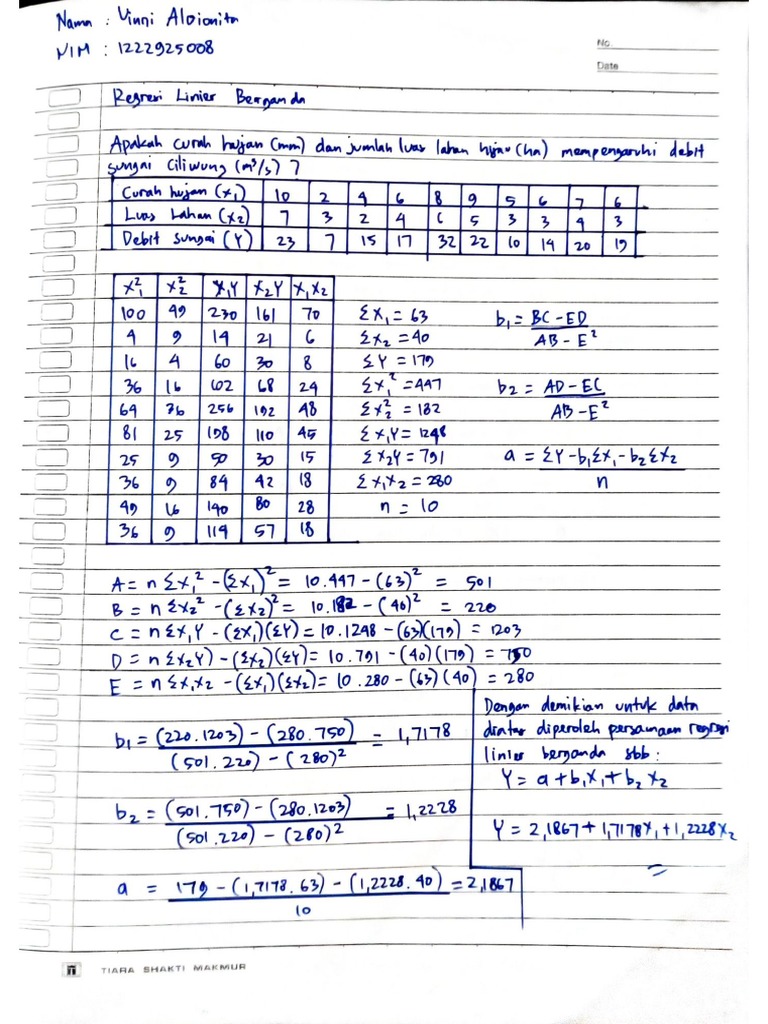 Nama : Vinni Aloionita
NIM : 1222925008
No.
Date
Regresi Linier Berganda
Apakah curah hujan (mm) dan jumlah luas lahan hijau (ha) mempengaruhi debit
sungai Ciliwung (m³/s) ?
Curah hujan (x₁) 10 2 4 6 8 9 5 6 7 6
Luas Lahan (x₂) 7 3 2 4 6 5 3 3 4 3
Debit Sungai (Y) 23 7 15 17 32 22 10 14 20 19
X₁² X₂² X₁Y X₂Y X₁X₂
100 49 230 161 70 Σx₁ = 63 b₁ = BC - ED / AB - E²
4 9 14 21 6 Σx₂ = 40
16 4 60 30 8 ΣY = 179
36 16 102 68 24 Σx₁² = 447 b₂ = AD - EC / AB - E²
64 36 256 192 48 Σx₂² = 182
81 25 198 110 45 Σx₁Y = 1248
25 9 50 30 15 Σx₂Y = 791 a = ΣY - b₁Σx₁ - b₂Σx₂ / n
36 9 84 42 18 Σx₁x₂ = 280
49 16 140 80 28 n = 10
36 9 114 57 18
A = n Σx₁² - (Σx₁)² = 10.447 - (63)² = 501
B = n Σx₂² - (Σx₂)² = 10.182 - (40)² = 220
C = n Σx₁Y - (Σx₁)(ΣY) = 10.1248 - (63)(179) = 1203
D = n Σx₂Y) - (Σx₂)(ΣY) = 10.791 - (40)(179) = 750
E = n Σx₁x₂ - (Σx₁)(Σx₂) = 10.280 - (63)(40) = 280
b₁ = (220.1203) - (280.750) / (501.220) - (280)² = 1,7178
b₂ = (501.750) - (280.1203) / (501.220) - (280)² = 1,2228
a = 179 - (1,7178.63) - (1,2228.40) / 10 = 2,1867
Dengan demikian untuk data
diatas diperoleh persamaan regresi
linier berganda sbb :
Y = a + b₁x₁ + b₂x₂
Y = 2,1867 + 1,7178x₁ + 1,2228x₂
TIARA SHAKTI MAKMUR